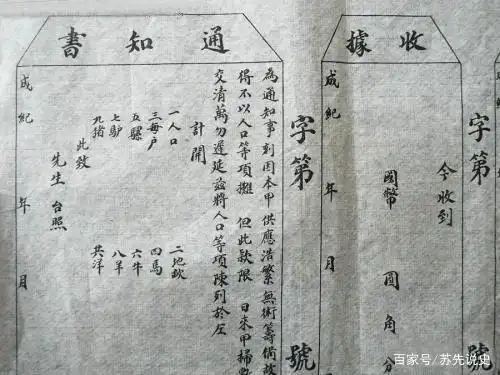 字第 號
收據
今收到
國幣 圓角分
成紀 年 月
字第 號
通知書
為通知事刻因本甲供應浩繁無術籌
得不以人口等項攤 但此款限 日來甲掃
交清萬勿遲延茲將人口等項陳列於左
計開
一人口 二地畝
三每户 四馬
五騾 六牛
七驴 八羊
九猪 共洋
此致
先生 台照
成紀 年 月
百家号/苏先说史